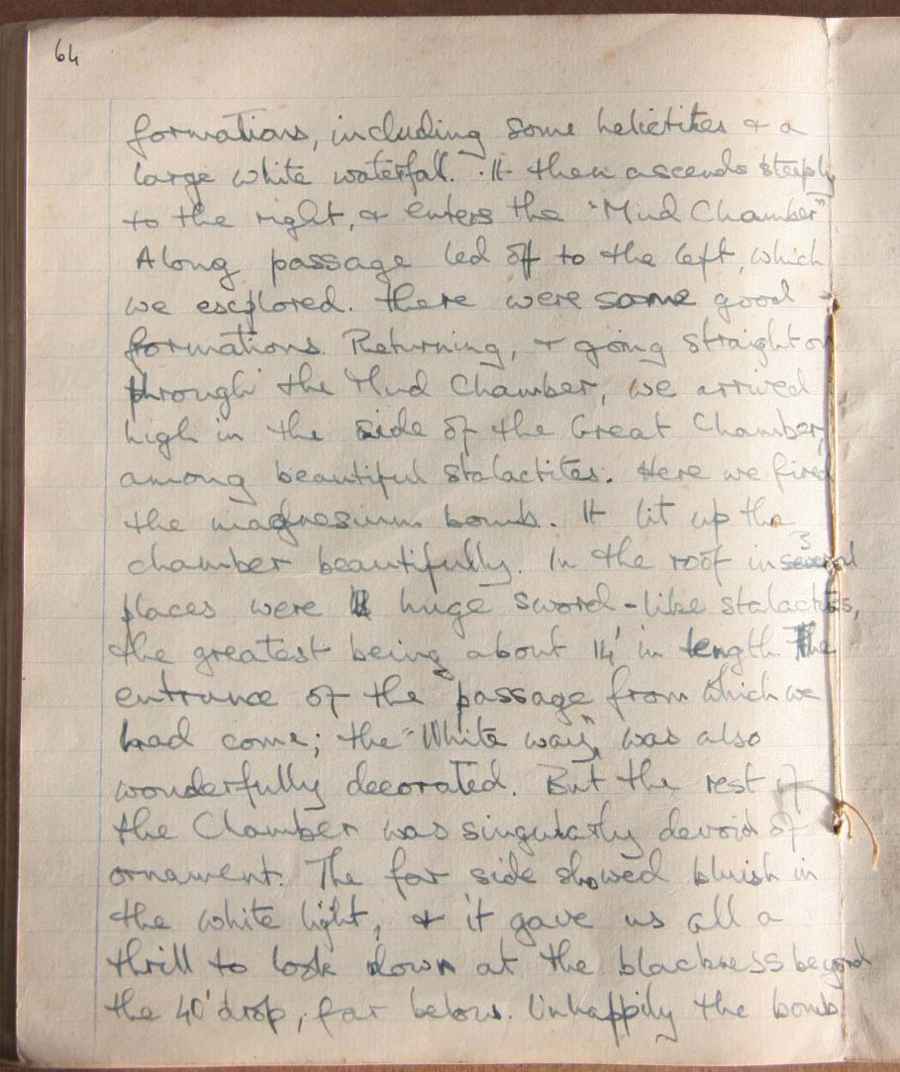 64
formations, including some helictites & a
large white waterfall. It then ascends steeply
to the right, & enters the "Mud Chamber"
A long passage led off to the left, which
we explored. There were some good
formations. Returning, & going straight on
through the Mud Chamber, we arrived
high in the side of the Great Chamber,
among beautiful stalactites. Here we fired
the magnesium bomb. It lit up the
chamber beautifully. In the roof in several
places were 3 huge sword-like stalactites,
the greatest being about 14' in length. The
entrance of the passage from which we
had come; the "White way", was also
wonderfully decorated. But the rest of
the Chamber was singularly devoid of
ornament. The far side showed bluish in
the white light, & it gave us all a
thrill to look down at the blackness beyond
the 40' drop, far below. Unhappily the bomb